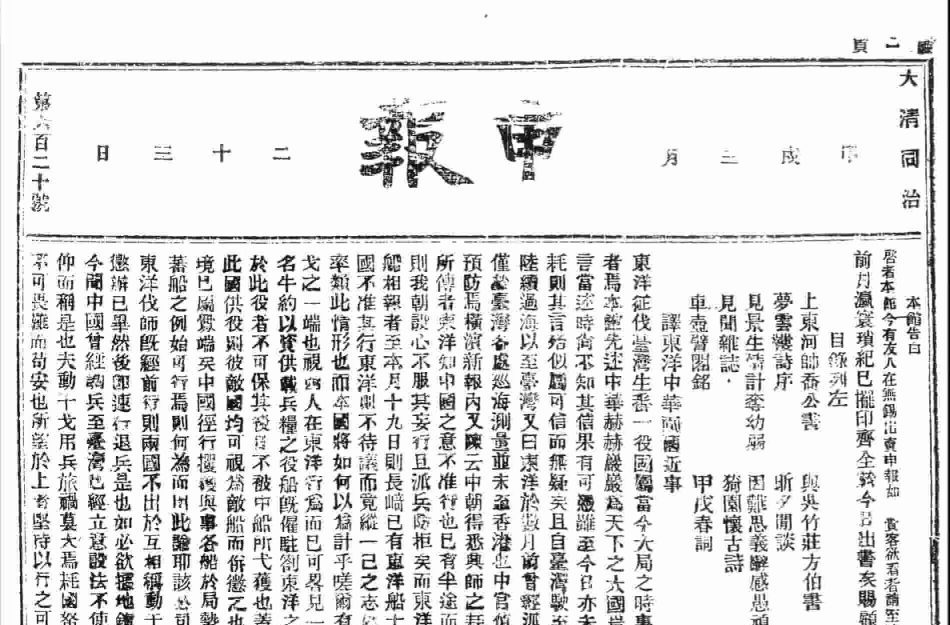 二頁
大清同治
甲戌三月
申報
二十三日
第六百二十號
本館告白
啓者本館今有友人在無錫出賣申報如 貴客欲看者請至
前月瀛寰瑣紀已擺印齊全於今日出書矣賜顧
目錄列左
上東河帥喬公書 與吳竹莊方伯書
夢雲樓詩序 斲夕閒談
見景生情計奪幼孀 因難思義辭感愚頑
見聞雜誌 猗園懷古詩
車壺臂閣銘 甲戌春詞
譯東洋中華兩國近事
東洋征伐臺灣生番一役國屬當今大局之時事
者焉本館先述中華赫赫嚴嚴爲天下之大國
言當述時尙不知其信果有可憑難至今日亦未
耗則其言始似屬可信而無疑矣且自臺灣駛至
陸續過海以至臺灣又曰東洋於數月前曾經派
僅於臺灣各處巡海測量並未至香港也中官值
預防焉橫濱新報內又陳云中朝得悉興師之
所傳者東洋知中國之意不准行也已有半途而
則我朝設心不服其妄行且派兵防拒矣而東洋
船相報者至本月十九日則長崎已有東洋船十
國不准其行東洋則不待議而竟縱一己之志
率類此情形也而本國將如何以爲計乎嗟爾有
戈之一端也視西人在東洋行爲而已可畧見一
名牛約以資供載兵糧之役船旣僱駐劄東洋之
於此役者不可保其後日不被中船所弋獲也蓋
此國供役則彼敵國均可視爲敵船而俯懲之也
境已屬釁端矣中國徑行攫獲與事各船於局勢
蕃船之例始可行焉則何爲而因此論耶該公司
東洋伐師旣經前行則兩國不出於互相稱動干
懲辦已畢然後卽速行退兵是也如必欲擾地
今聞中國曾經調兵至臺灣已經立意設法不使
仰而稱是也夫動干戈用兵旅禍莫大焉耗國
不可畏難而苟安也所望於上者堅持以行之可